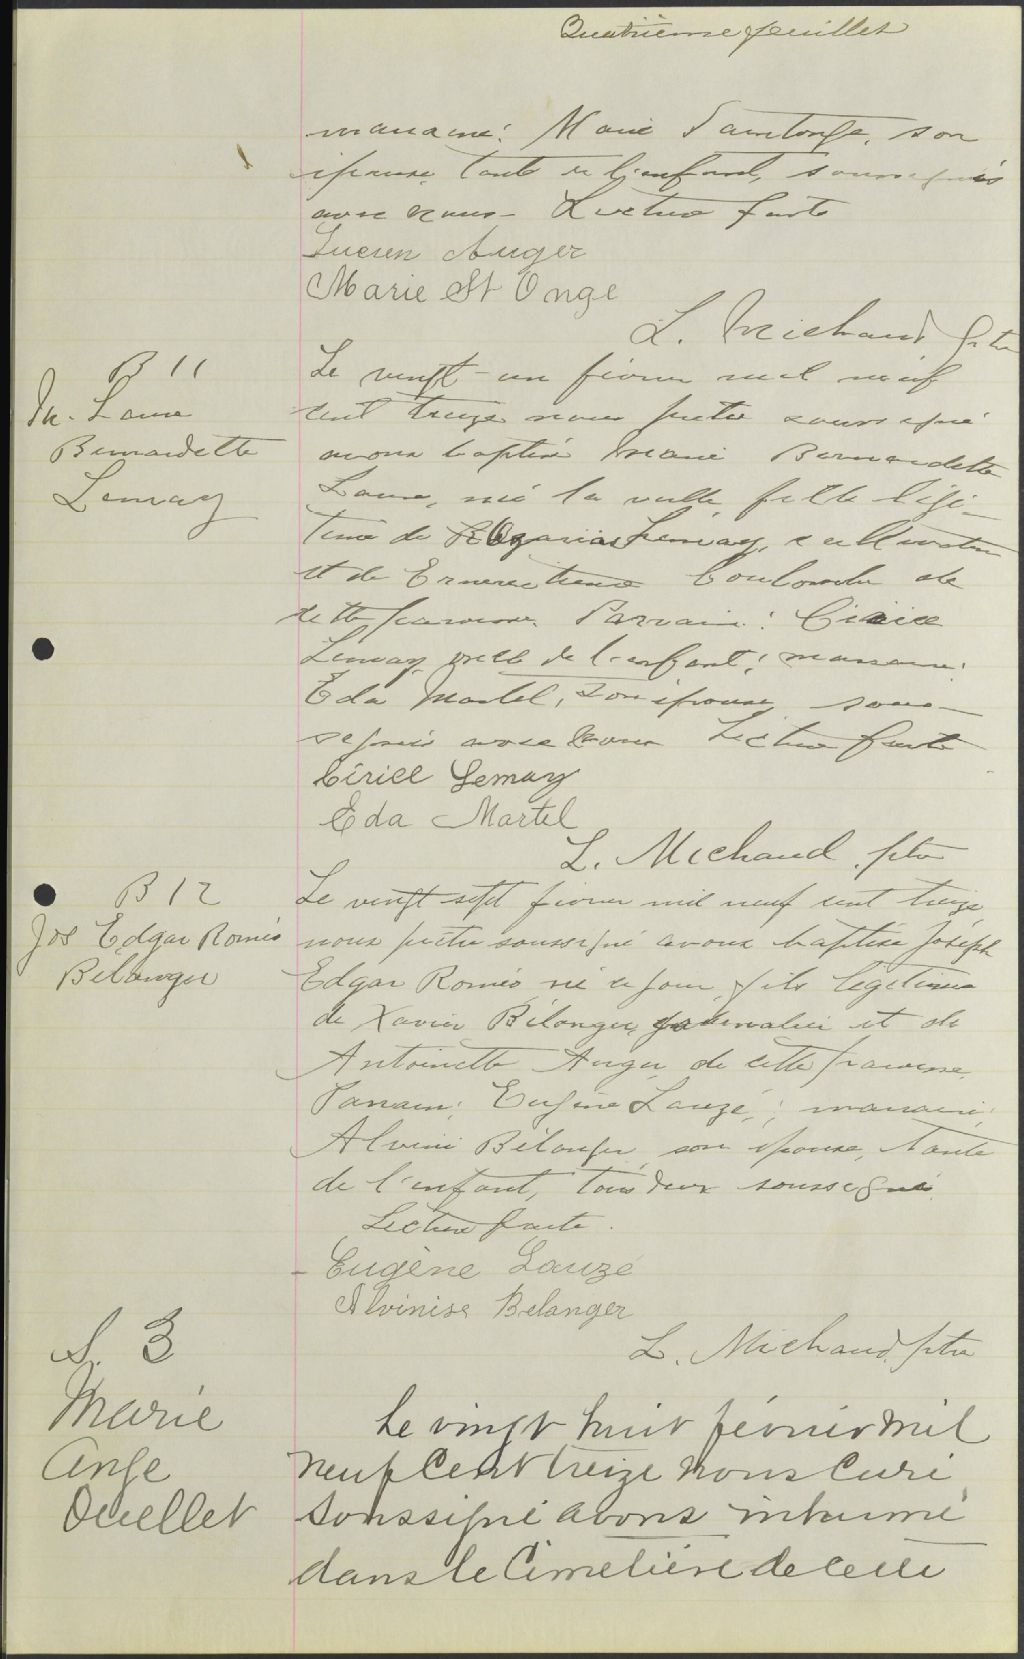 Quatrième feuillet
marraine: Marie Saintonge, son
épouse, tante de l'enfant, soussignés
avec nous. Lecture faite
Lucien Auger
Marie St Onge
L. Michaud ptre
B 11
M. Laure
Bernadette
Lemay
Le vingt-un février mil neuf
cent treize nous prêtre soussigné
avons baptisé Marie Bernadette
Laure, née la veille, fille légi-
time de Rozarias Lemay, cultivateur
et de Ernestine Coulombe de
cette paroisse. Parrain: Cirice
Lemay, oncle de l'enfant; marraine:
Eda Martel, son épouse, sous-
signés avec nous Lecture faite
Cirice Lemay
Eda Martel
L. Michaud, ptre
B 12
Jos Edgar Roméo
Bélanger
Le vingt-sept février mil neuf cent treize
nous prêtre soussigné avons baptisé Joseph
Edgar Roméo, né ce jour, fils légitime
de Xavier Bélanger, journalier et de
Antoinette Auger de cette paroisse.
Parrain: Eugène Lauzé; marraine:
Alvini Bélanger, son épouse, tante
de l'enfant, tous deux soussignés.
Lecture faite.
Eugène Lauzé
Alvinise Belanger
L. Michaud, ptre
S. 3
Marie
Ange
Ouellet
Le vingt huit février mil
neuf cent treize nous curé
soussigné avons inhumé
dans le Cimetière de cette